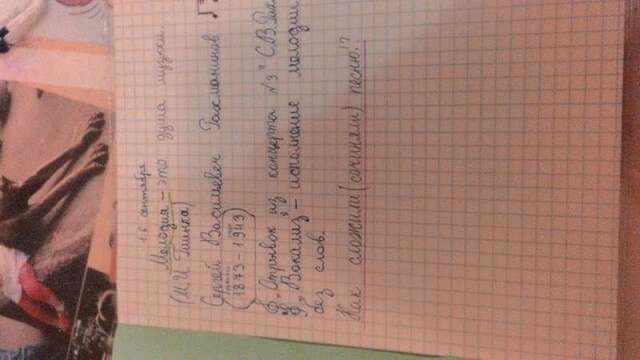 16 сентября
Мелодия – это душа музыки.
(М.И Глинка)
Сергей Васильевич Рахманинов
(1873 – 1943)
„Отрывок из концерта №3" С.В. Рах
„Вокализ" – исполнение мелодии
без слов.
Как сложили (сочиняли) песню!?